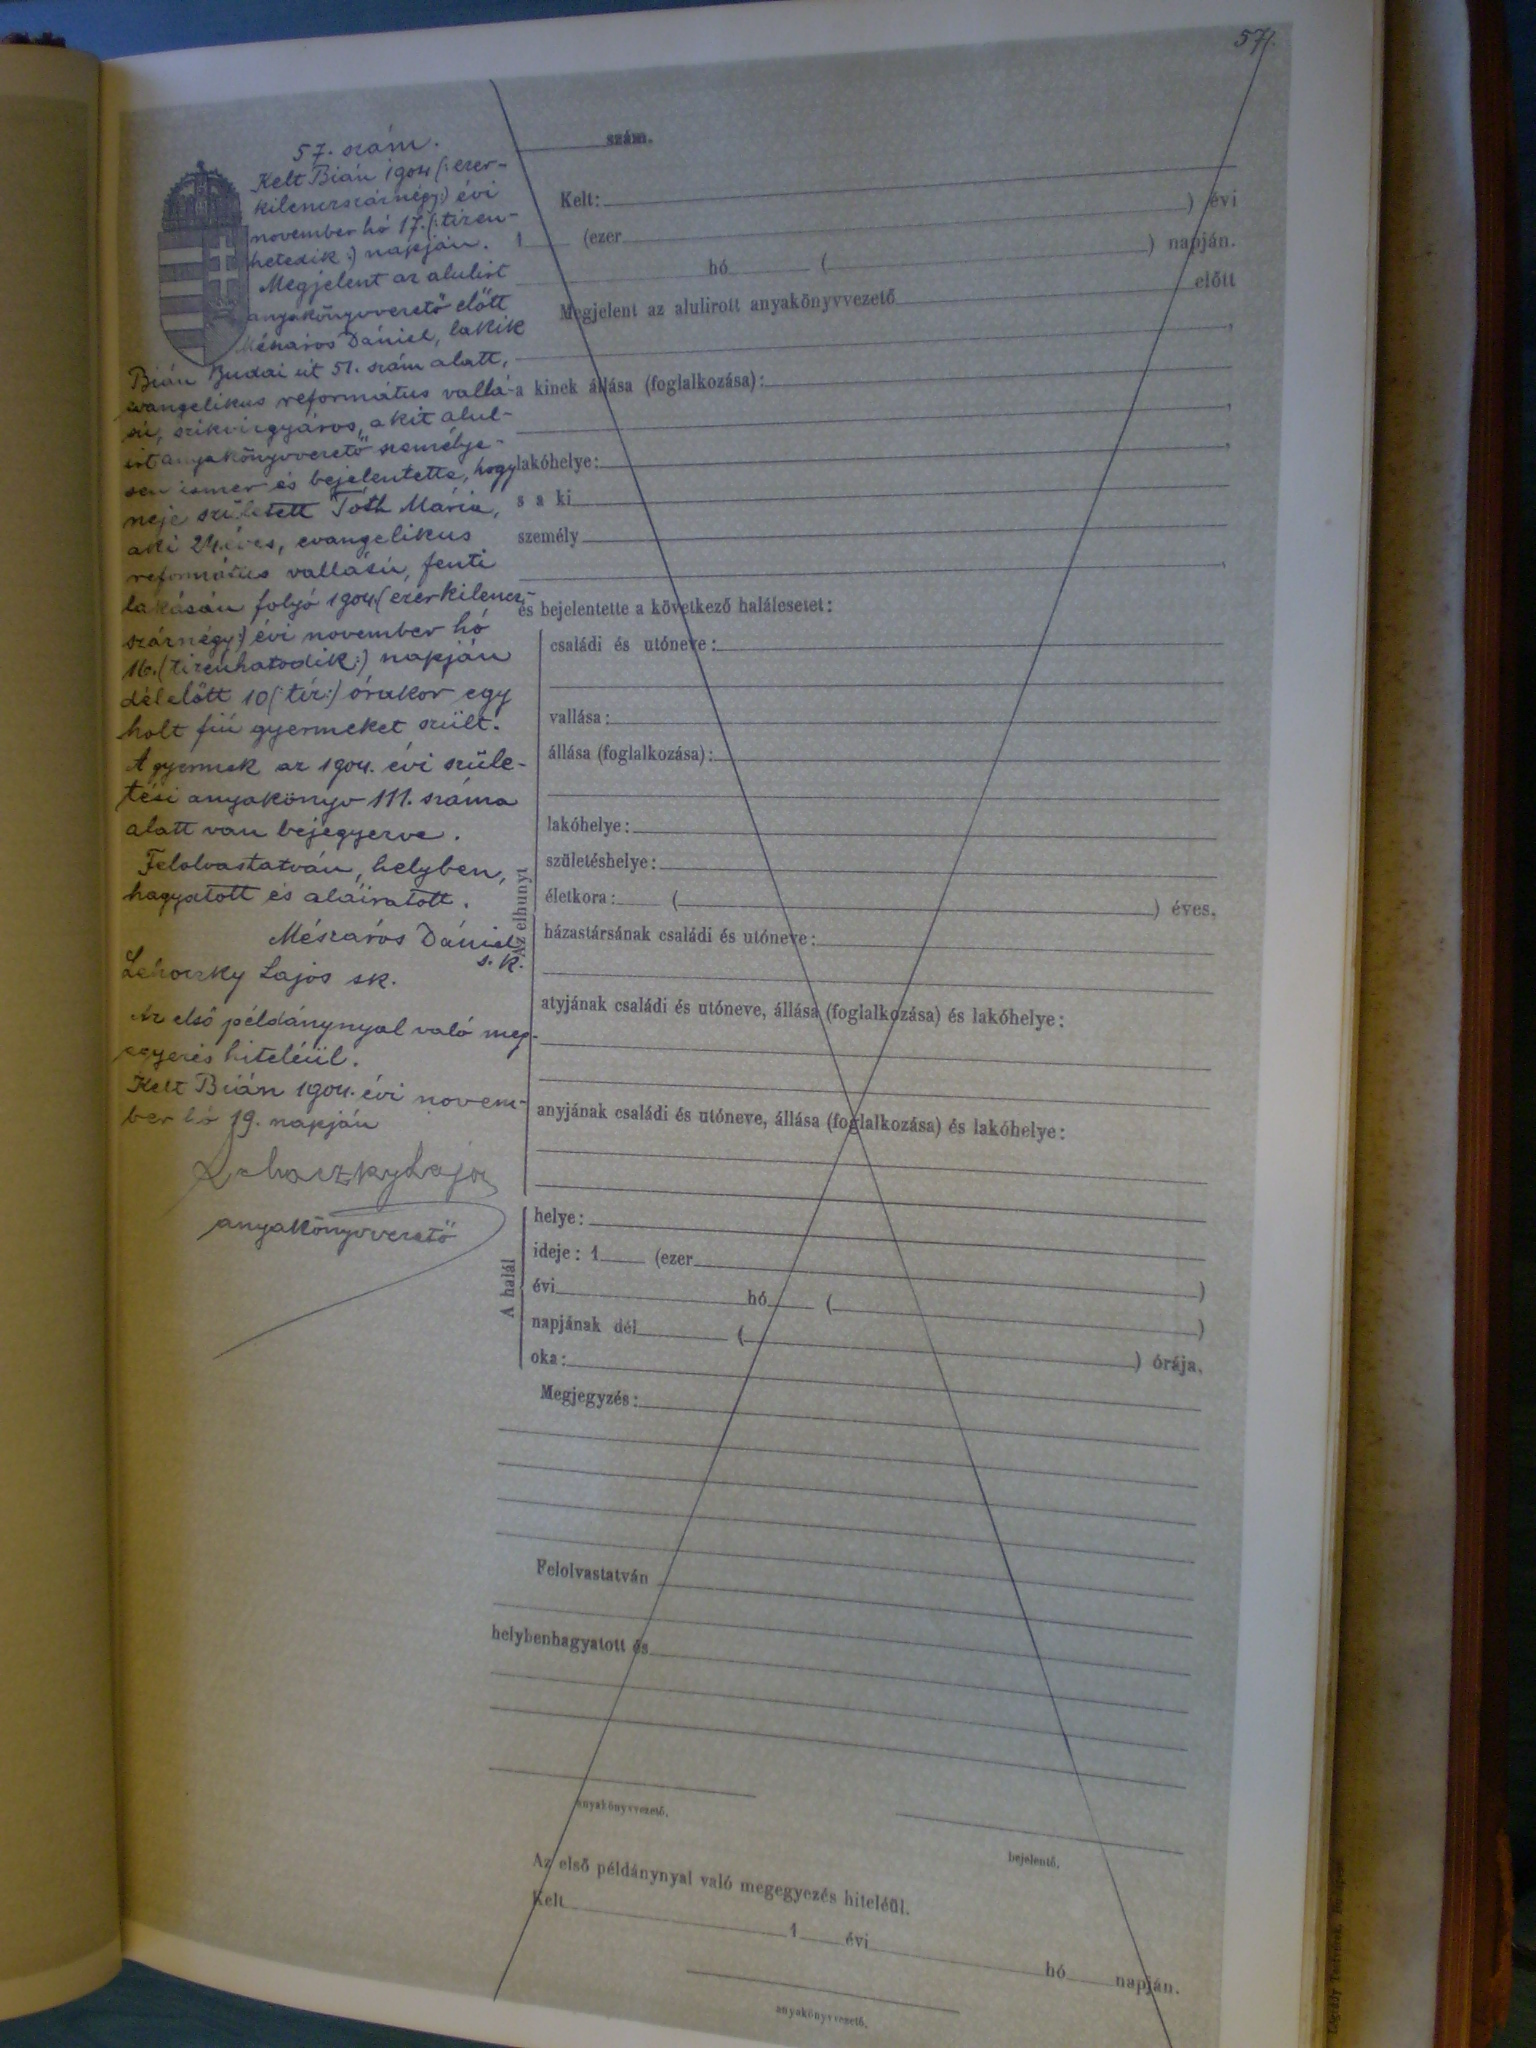 57.
57. szám.
Kelt Bián 1904 (: ezer-
kilencszáznégy:) évi
november hó 17. (: tizen-
hetedik :) napján.
Megjelent az alulirt
anyakönyvvezető előtt
Mészáros Dániel, lakik
Bián Budai út 51. szám alatt,
evangelikus református vallá-
sú, szikvizgyáros, akit alul-
irt anyakönyvvezető személye-
sen ismer és bejelentette, hogy
neje született Tóth Mária,
aki 24 éves, evangelikus
református vallású, fenti
lakásán folyó 1904 (ezerkilencz-
száznégy:) évi november hó
16. (tizenhatodik:) napján
délelőtt 10 (: tíz:) órakor egy
holt fiú gyermeket szült.
A gyermek az 1904. évi szüle-
tési anyakönyv 111. száma
alatt van bejegyezve.
Felolvastatván, helyben,
hagyatott és aláiratott.
Mészáros Dániel
s. k.
Lehoczky Lajos sk.
Az első példánynyal való meg-
egyezés hiteléül.
Kelt Bián 1904. évi novem-
ber hó 19. napján
Lehoczky Lajos
anyakönyvvezető
szám.
Kelt:
) évi
1 (ezer ) napján.
hó (
előtt
Megjelent az alulirott anyakönyvvezető
,
a kinek állása (foglalkozása):
,
lakóhelye: ,
s a ki
személy
,
és bejelentette a következő halálesetet:
Az elhunyt
családi és utóneve:
vallása:
állása (foglalkozása):
lakóhelye:
születéshelye:
életkora: ( ) éves.
házastársának családi és utóneve:
atyjának családi és utóneve, állása (foglalkozása) és lakóhelye:
anyjának családi és utóneve, állása (foglalkozása) és lakóhelye:
A halál
helye:
ideje: 1 (ezer )
évi hó ( )
napjának dél ( ) órája.
oka:
Megjegyzés:
Felolvastatván
helybenhagyatott és
anyakönyvvezető.
bejelentő.
Az első példánynyal való megegyezés hiteléül.
Kelt 1 évi hó napján.
anyakönyvvezető.